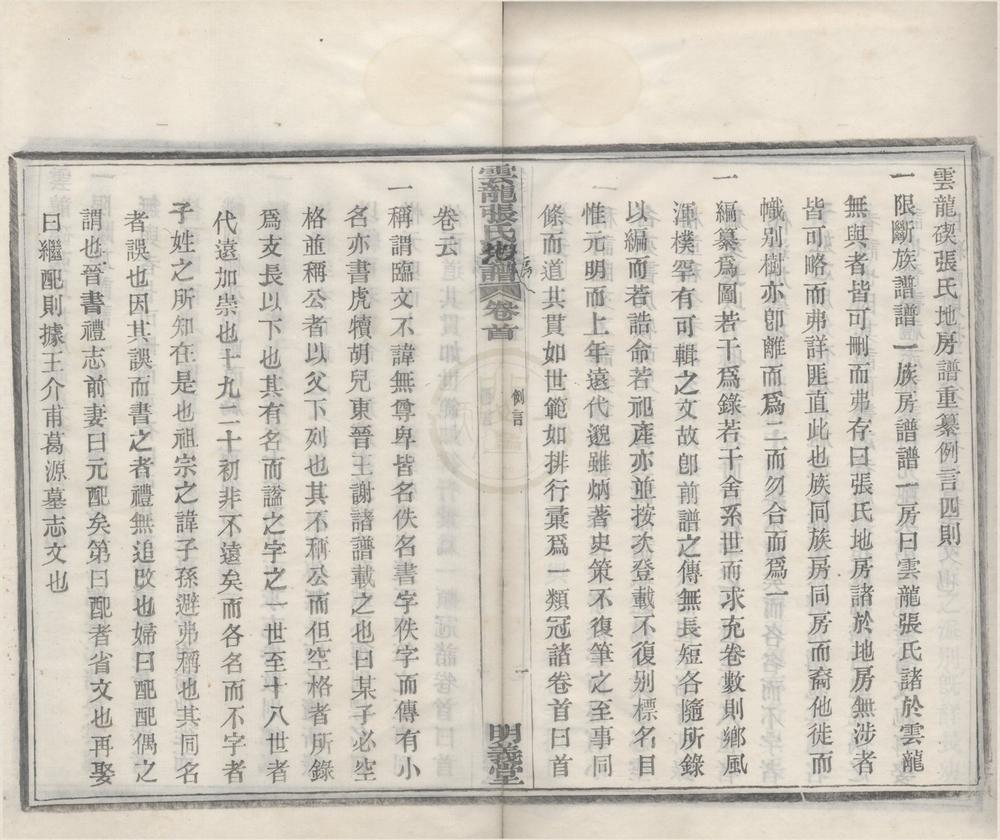 雲龍碶張氏地房譜重纂例言四則
一限斷族譜譜一族房譜譜一房曰雲龍張氏諸於雲龍
無與者皆可刪而弗存曰張氏地房諸於地房無涉者
皆可略而弗詳匪直此也族同族房同房而裔他徙而
幟别樹亦卽離而爲二而勿合而爲一
一編纂爲圖若干爲錄若干舍系世而求充卷數則鄉風
渾樸罕有可輯之文故卽前譜之傳無長短各隨所錄
以編而若誥命若祀產亦並按次登載不復别標名目
惟元明而上年遠代邈雖炳著史策不復筆之至事同
條而道其貫如世範如排行彙爲一類冠諸卷首曰首
卷云
雲龍張氏地房譜
卷首
例言
一
明義堂
一稱謂臨文不諱無尊卑皆名佚名書字佚字而傳有小
名亦書虎犢胡兒東晉王謝諸譜載之也曰某子必空
格並稱公者以父下列也其不稱公而但空格者所錄
爲支長以下也其有名而謚之字之一世至十八世者
代遠加崇也十九二十初非不遠矣而各名而不字者
子姓之所知在是也祖宗之諱子孫避弗稱也其同名
者誤也因其誤而書之者禮無追改也婦曰配配偶之
謂也晉書禮志前妻曰元配矣第曰配者省文也再娶
曰繼配則據王介甫葛源墓志文也